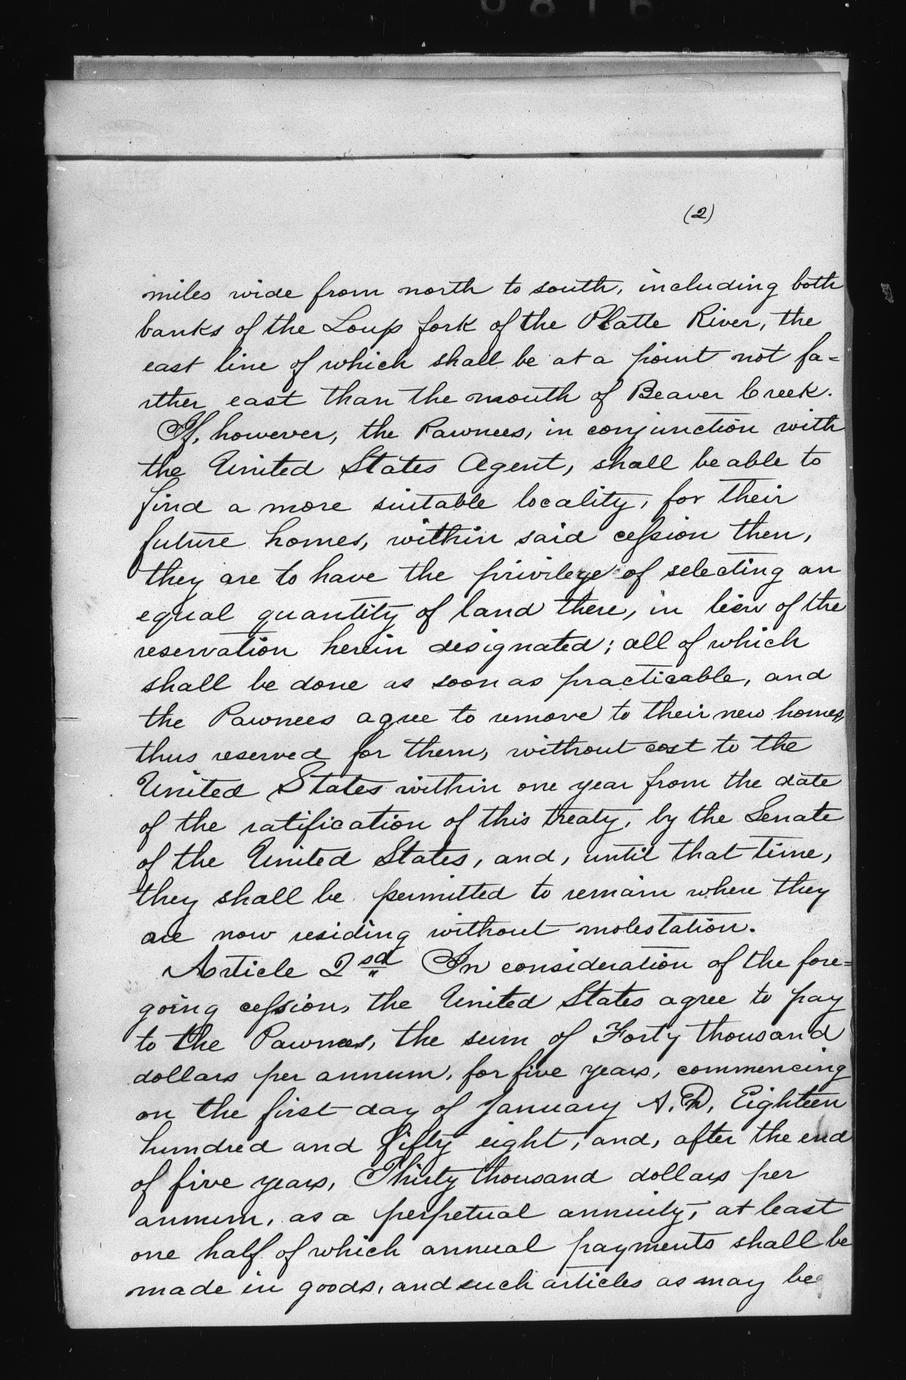 (2)
miles wide from north to south, including both
banks of the Loup fork of the Platte River, the
east line of which shall be at a point not fa=
rther east than the mouth of Beaver Creek.
If, however, the Pawnees, in conjunction with
the United States Agent, shall be able to
find a more suitable locality, for their
future homes, within said cession then,
they are to have the privilege of selecting an
equal quantity of land there, in lieu of the
reservation herein designated; all of which
shall be done as soon as practicable, and
the Pawnees agree to remove to their new homes
thus reserved for them, without cost to the
United States within one year from the date
of the ratification of this treaty, by the Senate
of the United States, and, until that time,
they shall be permitted to remain where they
are now residing without molestation.
Article 2sd In consideration of the fore=
going cession, the United States agree to pay
to the Pawnees, the sum of Forty thousand
dollars per annum, for five years, commencing
on the first day of January A.D. Eighteen
hundred and fifty eight; and, after the end
of five years, Thirty thousand dollars per
annum, as a perpetual annuity, at least
one half of which annual payments shall be
made in goods, and such articles as may be